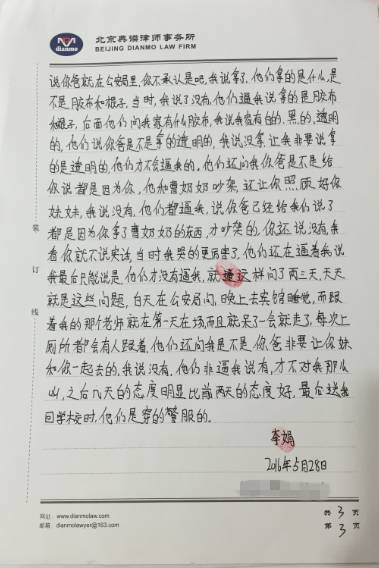 北京典谟律师事务所
dianmo
BEIJING DIANMO LAW FIRM
说你爸就在公安局里,你不承认是吧,我说拿了,他们拿的是什么,是
不是胶布和棍子,当时,我说了没有,他们逼我说拿的是胶布
和棍子,后面他们问我家有什么胶布,我说我家有白的,黑的,透明
的,他们说你爸是不是拿的透明的,我说没拿,让我非要说拿
的是透明的,他们才不会逼我的。他们还问我你爸是不是给
你说都是因为你,他和曹奶奶吵架,还让你照顾好你
妹妹,我说没有,他们都逼我,说你爸已经给我们说了
都是因为你拿了曹奶奶的东西,才吵架的,你还说没有我
看你就不说实话,当时我哭的更厉害了,他们还在逼着我说
我最后只能说是,他们才没有逼我,就这样问了两三天,天天
就是这些问题,白天在公安局问,晚上去宾馆睡觉,而跟
着我的那个老师就在第一天在场,而且就呆了一会就走了,每次上
厕所都会有人跟着,他们还问我是不是你爸非要让你妹
和你一起去的,我说没有,他们非逼我说有,才不对我那么
凶,之后几天的态度明显比前两天的态度好,最后送我
回学校时,他们是穿的警服的。
李娟
2016年5月28日
装
订
线
网址:www.dianmolaw.com
邮箱:dianmolawyer@163.com
共 3 页
第 3 页